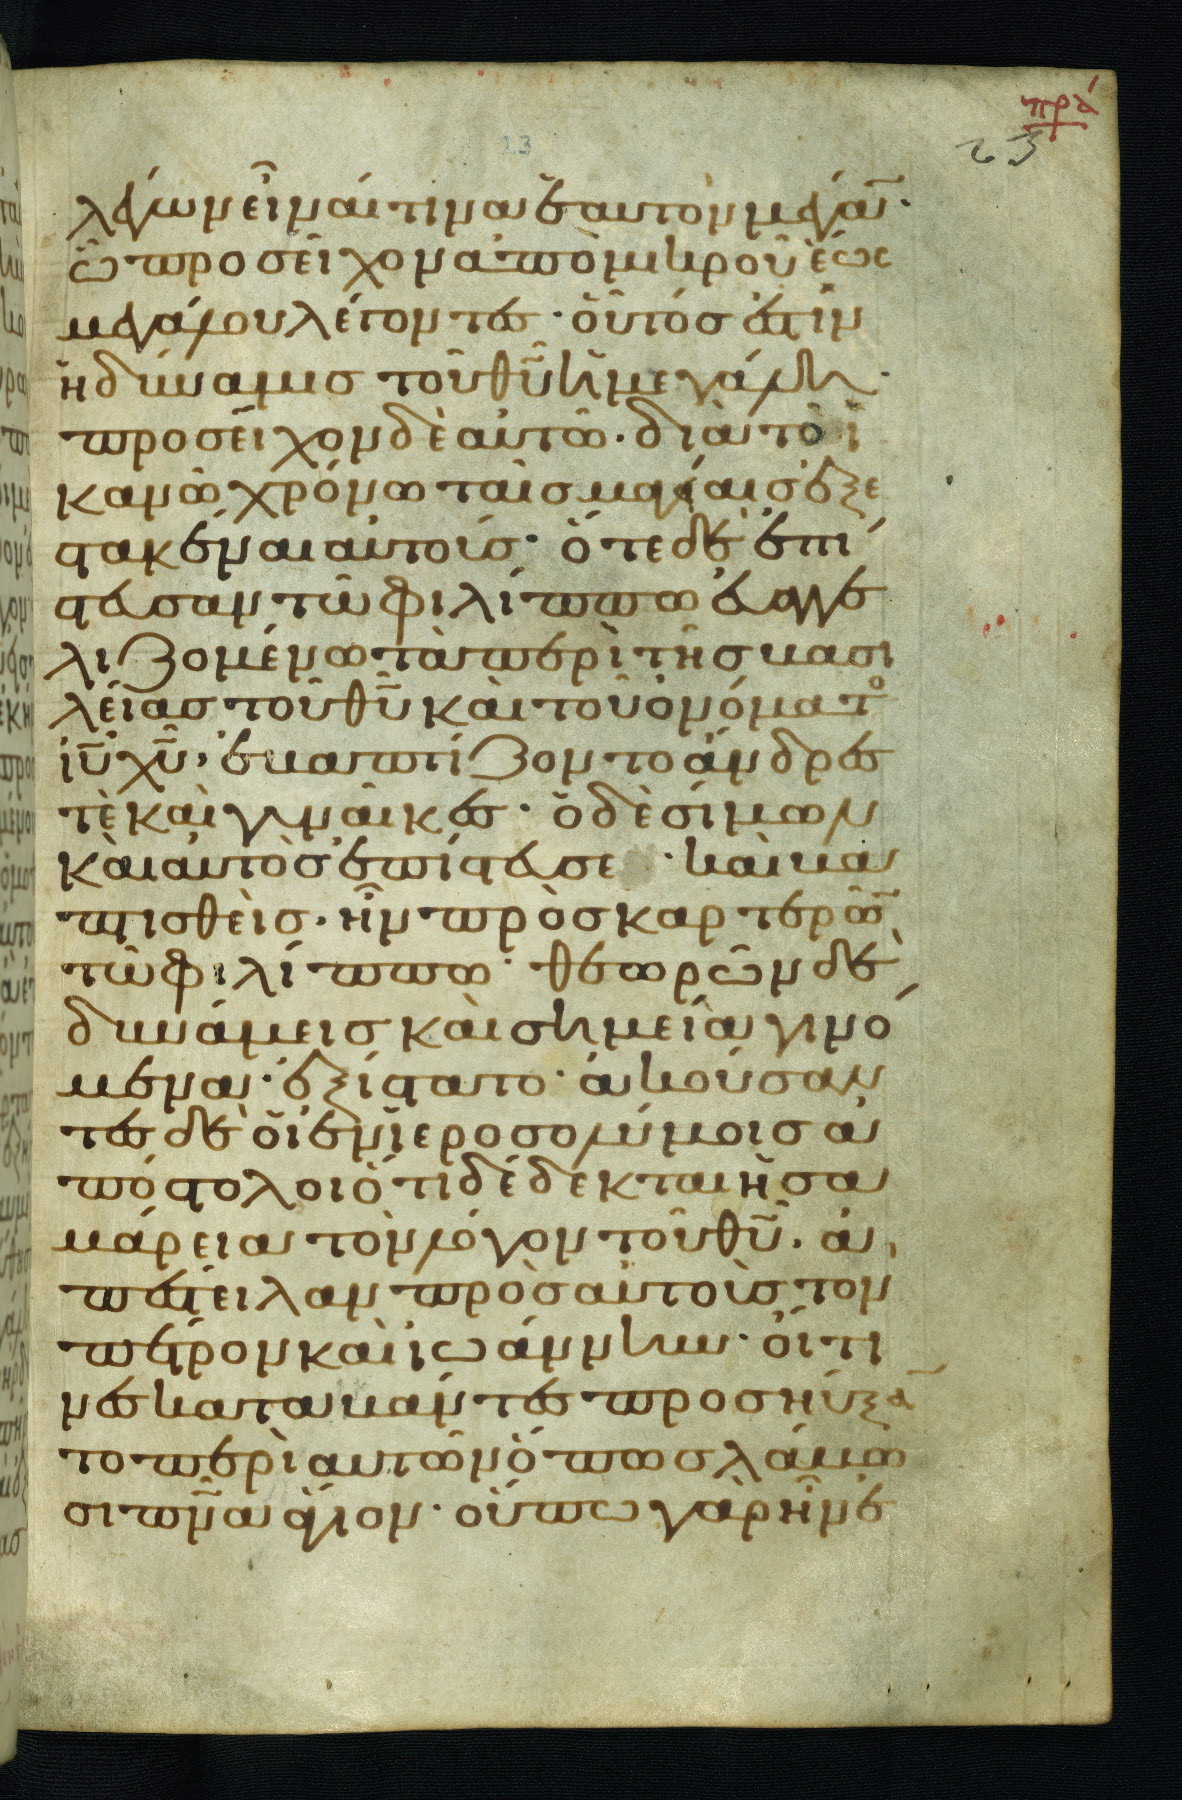 πρά
23
13
λέγων εἶναί τινα ἑαυτὸν μέγαν·
ὧ προσεῖχον ἀπὸ μικροῦ ἕως
μεγάλου λέγοντες· οὗτός ἐστιν
ἡ δύναμις τοῦ θῦ ἡ μεγάλη·
προσεῖχον δὲ αὐτῶ· διὰ τὸ ἱ
κανῶ χρόνω ταῖς μαγίαις ἐξε
στακέναι αὐτούς· ὅτε δὲ ἐπί
στευσαν τῶ φιλίππω εὐαγγε
λιζομένω τὰ περὶ τῆς βασι
λείας τοῦ θῦ καὶ τοῦ ὀνόματο
ἰῦ χῦ· ἐβαπτίζοντο ἄνδρες
τὲ καὶ γυναῖκες· ὁ δὲ σίμων
καὶ αὐτὸς ἐπίστευσε · καὶ βα
πτισθεὶς· ἦν προσκαρτερῶν
τῶ φιλίππω· θεωρῶν δὲ
δυνάμεις καὶ σημεία γινό
μενα· ἐξίστατο· ἀκούσαν
τες δὲ οἱ ἐν ἱεροσολύμοις ἀ
πόστολοι ὅτι δέδεκται ἡ σα
μάρεια τὸν λόγον τοῦ θῦ· ἀ
πέστειλαν πρὸς αὐτοὺς τον
πέτρον καὶ ἰωάννην· οἵτι
νες καταβάντες προσηύξαν
το περὶ αὐτῶν ὅπως λάβω
σι πνᾶ ἅγιον· οὔπω γὰρ ἦν ἐ